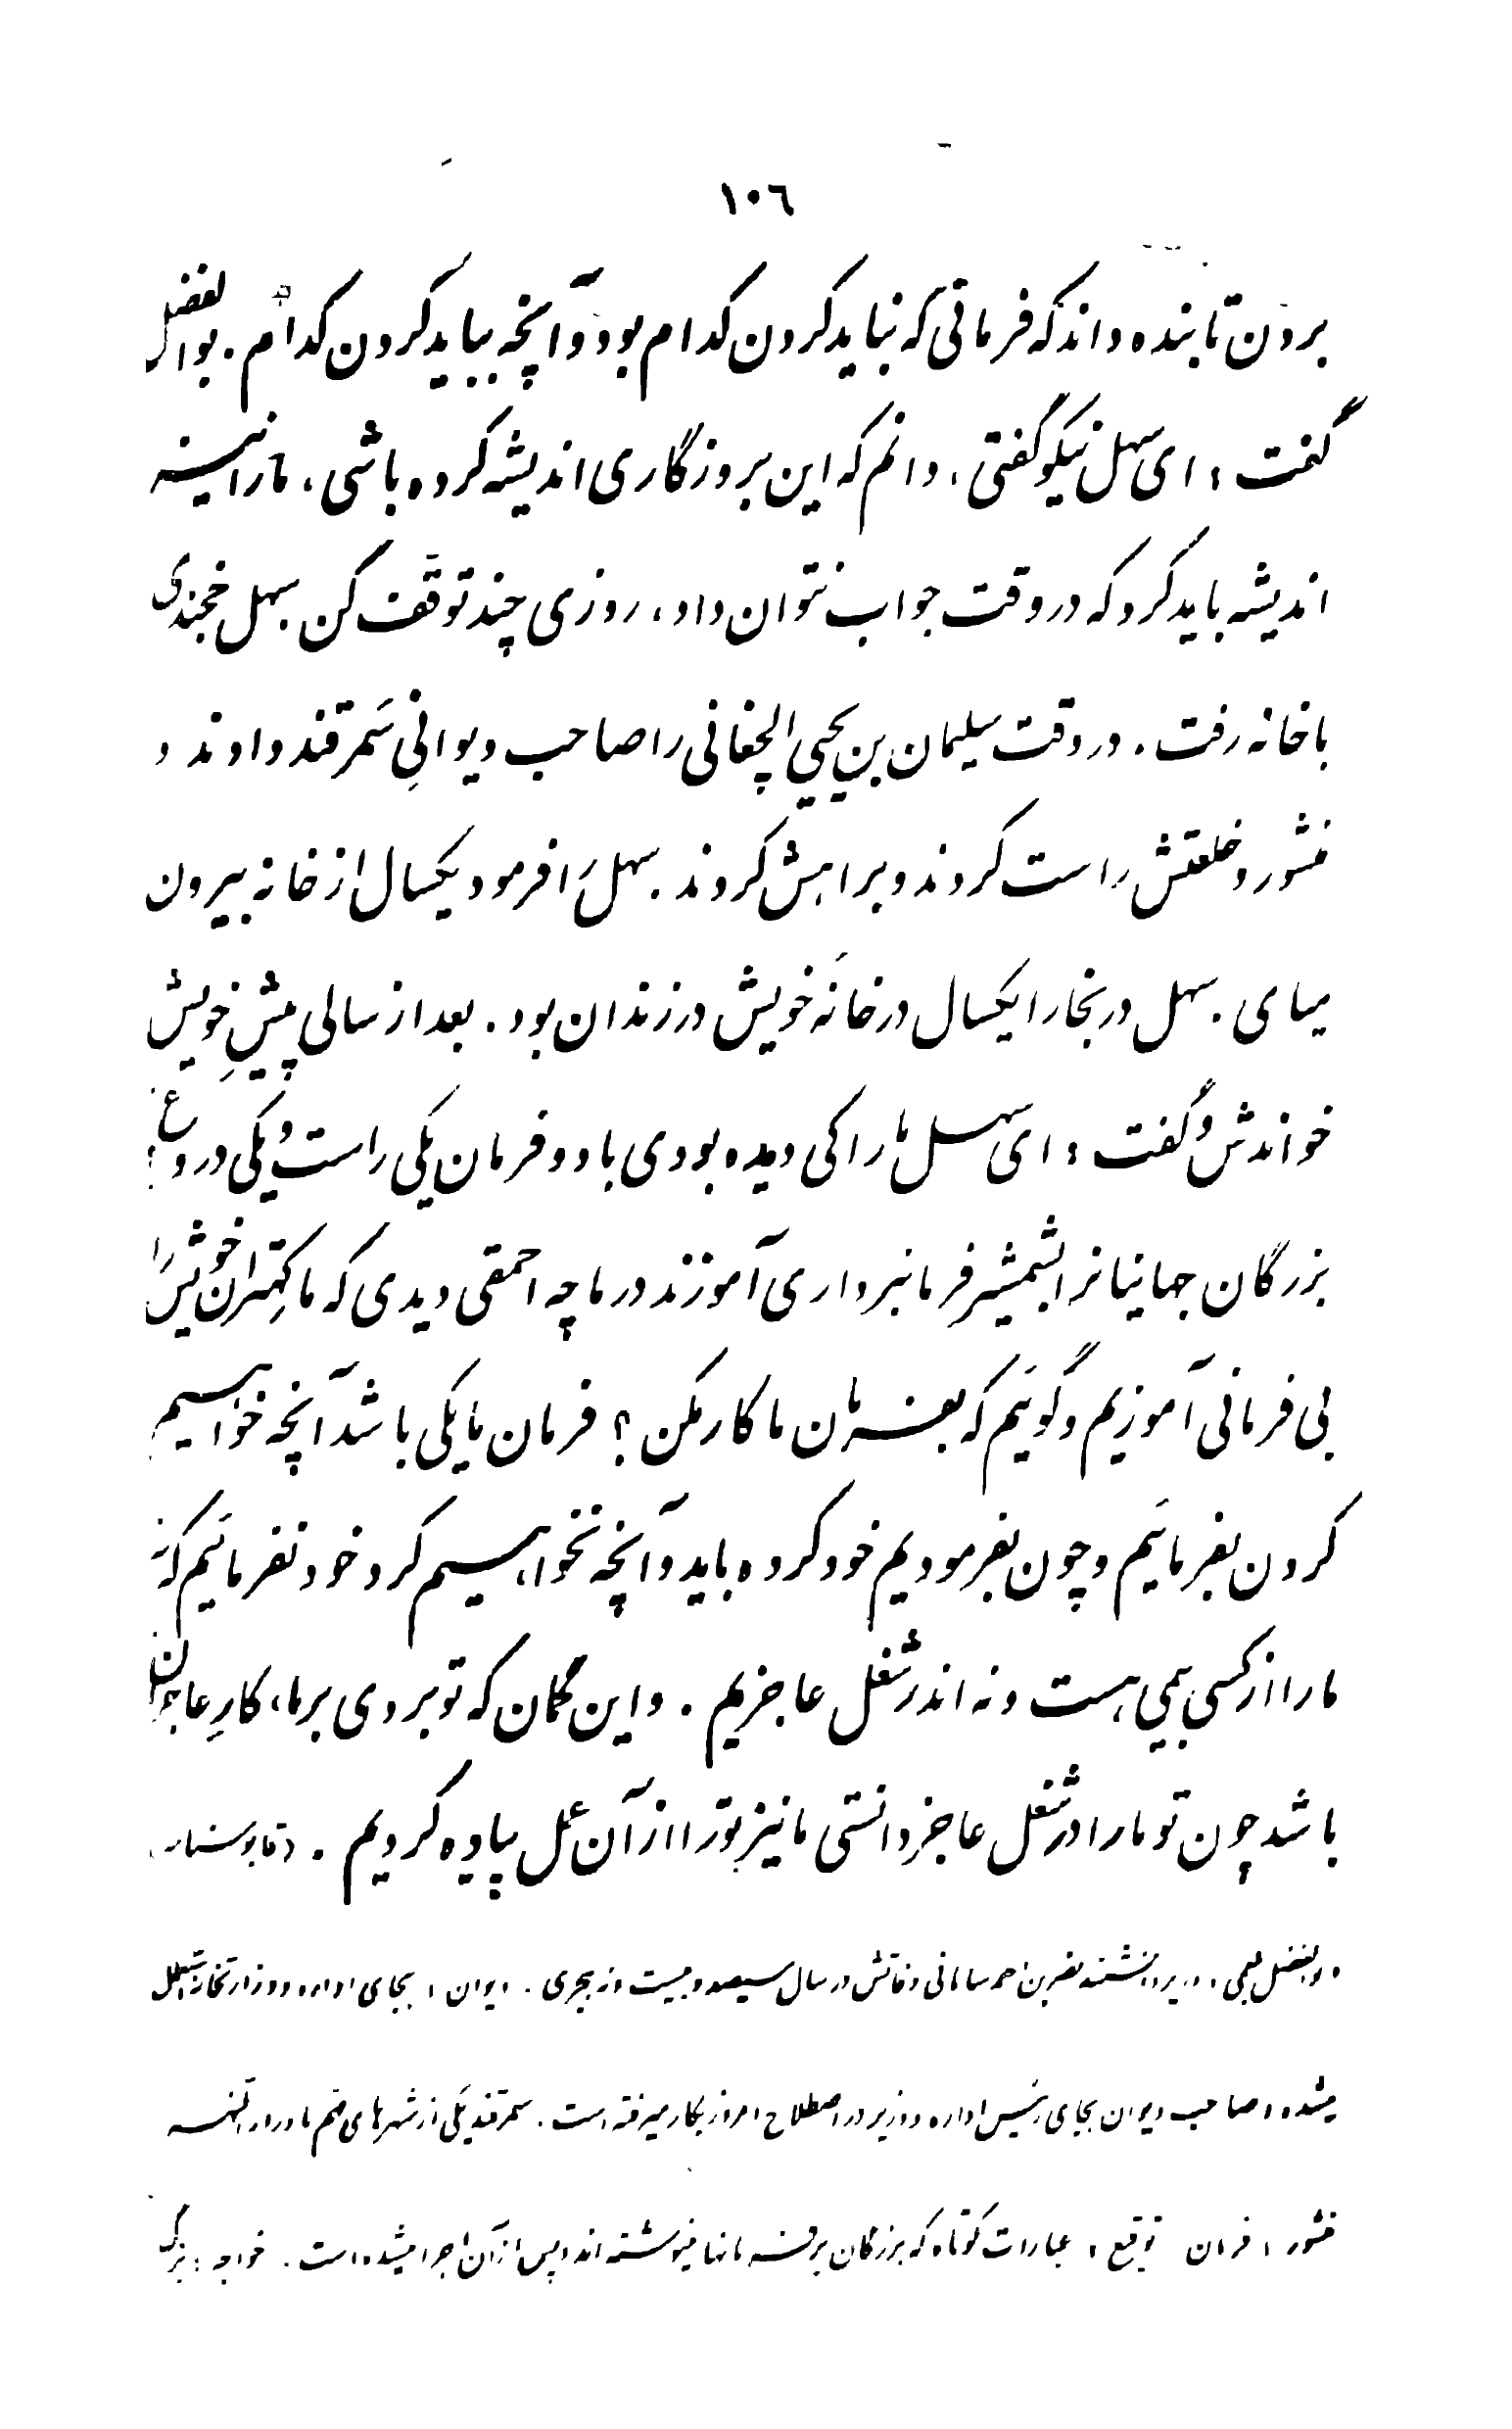 ١٠٦
بردن تا بنده داند که فرمانی که نباید کردن کدام بود و آنچه بباید کردن کدام . بوالفضل
گفت : ای سهل نیکو گفتی ، دانم که این بروزگاری اندیشه کرده باشی ، ما را نیز
اندیشه باید کرد که در وقت جواب نتوان داد ، روزی چند توقف کن . سهل خجندی
باخانه رفت . در وقت سلیمان بن یحیی الچغانی را صاحب دیوانی سمرقند دادند و
منشور و خلعتش راست کردند و براهش کردند . سهل را فرمود یکسال از خانه بیرون
میای . سهل در بخارا یکسال در خانه خویش در زندان بود . بعد از سالی پیش خویش
خواندش و گفت : ای سهل ما را کی دیده بودی با دو فرمان یکی راست و یکی دروغ ؟
بزرگان جهانیانرا بشمشیر فرمانبرداری آموزند در ما چه احمقی دیدی که ما کهتران خویش را
بی فرمانی آموزیم و گوئیم که بفرمان ما کار مکن ؟ فرمان ما یکی باشد آنچه خواهیم
کردن بفرمائیم و چون بفرمودیم خود کرده باید و آنچه نخواهیم کرد خود نفرمائیم که نه
ما را از کسی بیمی هست و نه اندر شغل عاجزیم . و این گمان که تو بردی برما ، کار عاجزان
باشد چون تو ما را در شغل عاجز دانستی ما نیز تو را از آن عمل پیاده کردیم . (قابوسنامه)
بوالفضل بلعمی : وزیر دانشمند نصر بن احمد سامانی وفاتش در سال سیصد و بیست و نه هجری . دیوان : بجای اداره و وزارتخانه استعمال
میشده و صاحب دیوان بجای رئیس اداره و وزیر در اصطلاح امروز بکار میرفته است . سمرقند یکی از شهرهای مهم ماوراءالنهر
منشور : فرمان توقیع : عبارات کوتاه که بزرگان بر فرمانها مینوشته اند و پس از آن اجرا میشده است . خواجه : بزرگ